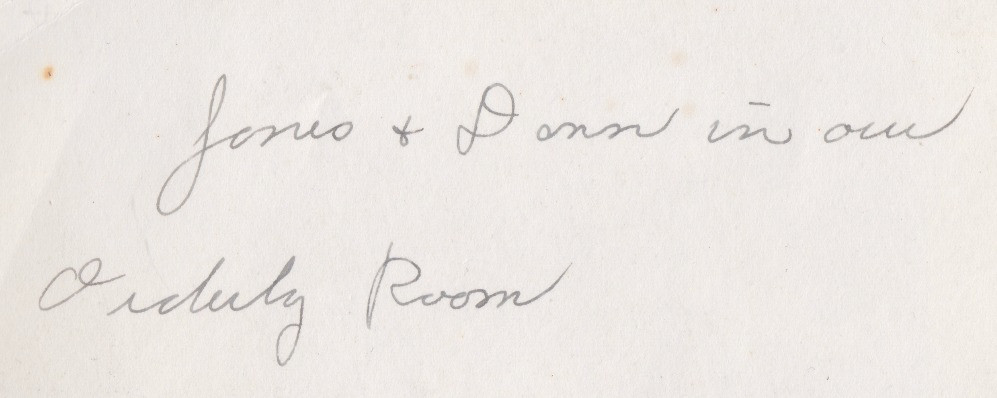 Jones & Donn in our
Orderly Room